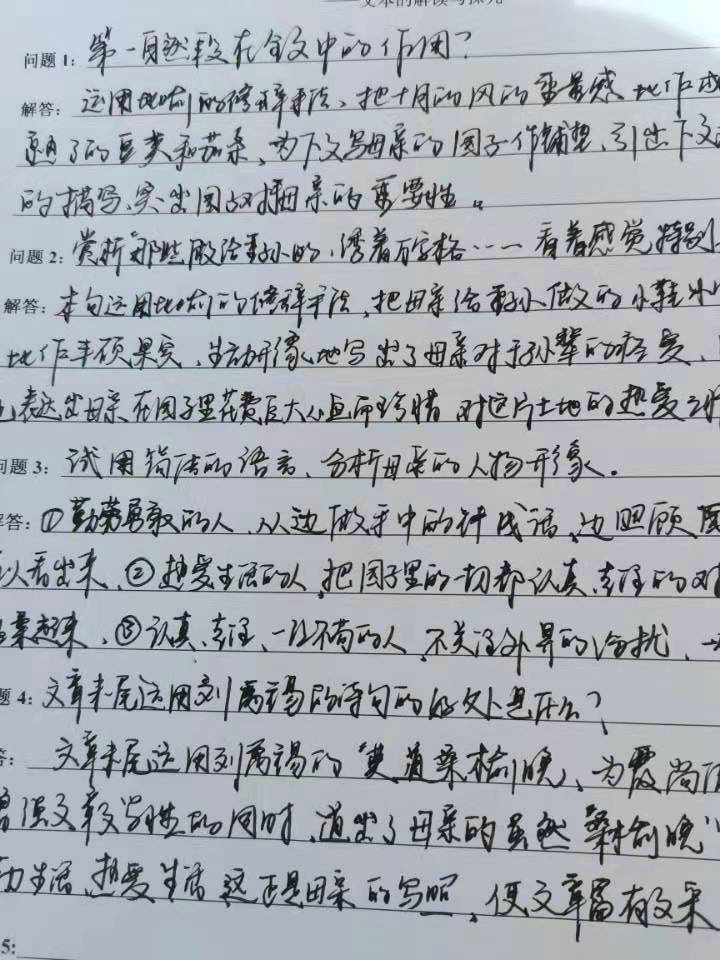 文本的解读与探究
问题 1: 第一自然段在全文中的作用?
解答: 运用比喻的修辞手法、把十月的风的重量感比作成
熟了的豆荚和茄子、为下文写母亲的园子作铺垫、引出下文
的描写、突出园子对母亲的重要性。
问题 2: 赏析“那些做给重孙的,绣着万字格……看着感觉特别
解答: 本句运用比喻的修辞手法,把母亲给重孙做的小鞋
比作丰硕果实,生动形象地写出了母亲对于孙辈的疼爱,
表达出母亲在园子里花费巨大心血而珍惜 对这片土地的热爱之
问题 3: 试用简洁的语言、分析母亲的人物形象。
解答: ①勤劳勇敢的人,从边做手中的针线活、边照顾
以看出来,②热爱生活的人,把园子里的一切都认真、专注的对
起来,③认真、专注、一丝不苟的人,不关注外界的纷扰,
题 4: 文章末尾运用刘禹锡的诗句的好处是什么?
答: 文章末尾运用刘禹锡的“莫道桑榆晚、为霞尚
增强文章文学性的同时,道出了母亲的虽然“桑榆晚”
生活,热爱生活 这正是母亲的写照,使文章富有文采
5: